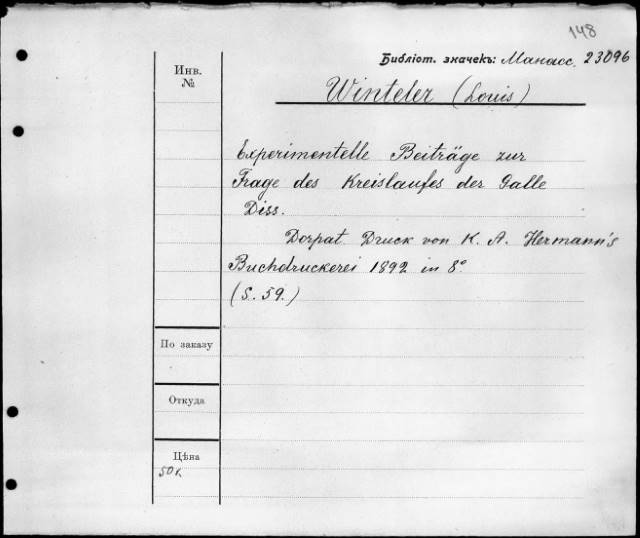 148
Библіот. значекъ: Манасс. 23096
Инв. №
Winteler (Louis)
Experimentelle Beiträge zur
Frage des Kreislaufes der Galle
Diss.
Dorpat. Druck von K. A. Hermann's
Buchdruckerei 1892 in 8°
(S. 59.)
По заказу
Откуда
Цѣна
50 к.